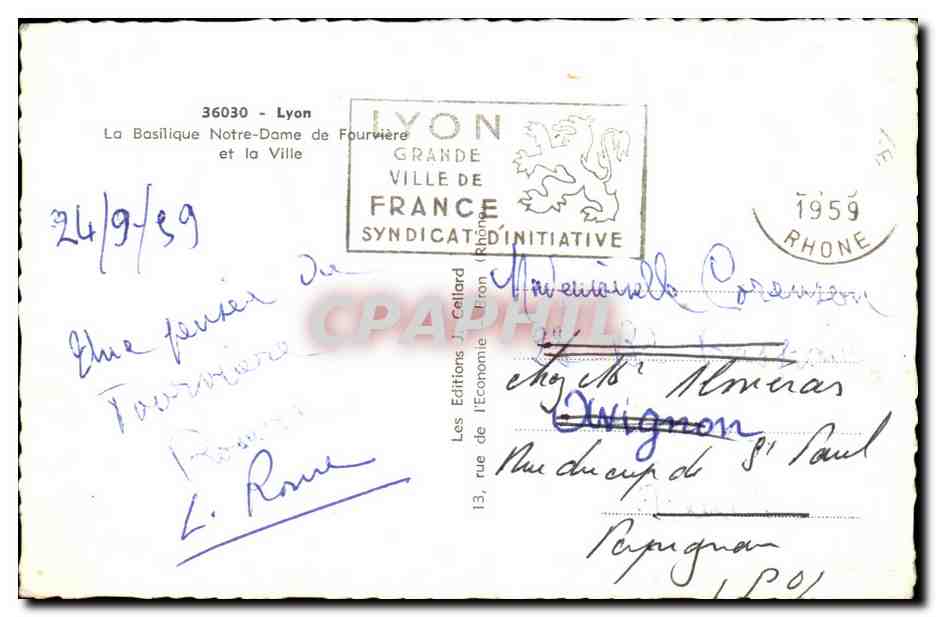 36030 - Lyon
La Basilique Notre-Dame de Fourvière
et la Ville
LYON
GRANDE
VILLE DE
FRANCE
SYNDICAT D'INITIATIVE
1959
RHONE
24/9/59
Une pensée de
Fourvière
L. Rome
Les Editions J. Cellard
13, rue de l'Economie Bron (Rhône)
CPAPHIL
Mademoiselle
chez Mr Almeras
Avignon
Rue du cup de St Paul
Papignan
(P.O)